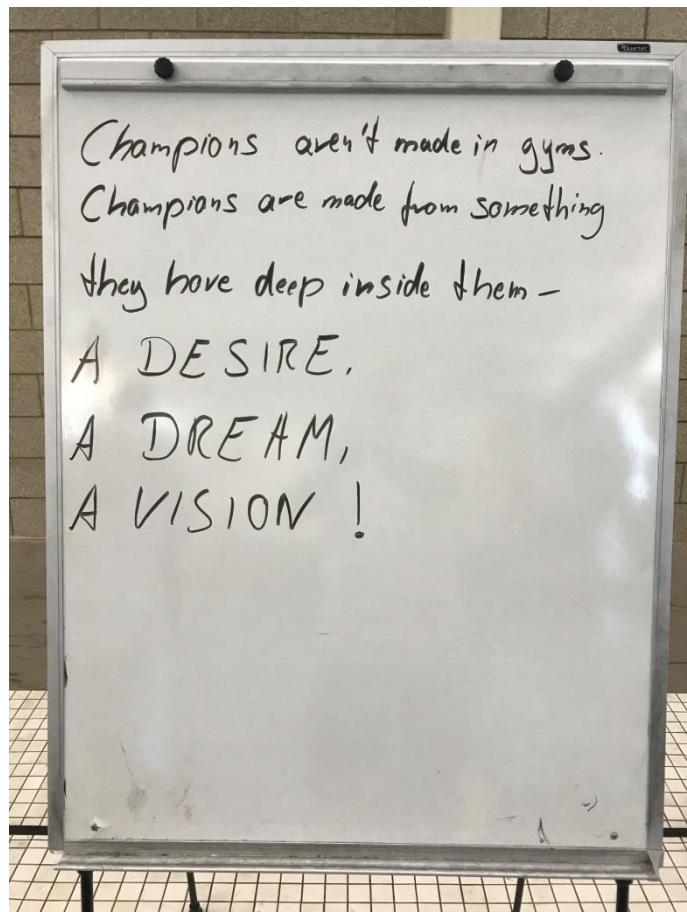 Quartet
Champions aren't made in gyms.
Champions are made from something
they have deep inside them –
A DESIRE,
A DREAM,
A VISION !